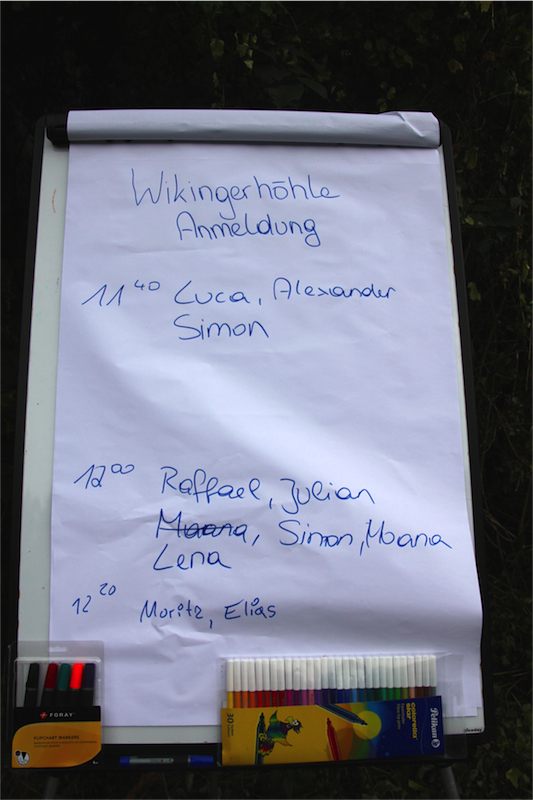 Wikingerhöhle
Anmeldung
11 40 Luca, Alexander
Simon
12 00 Raffael, Julian
Maana, Simon, Moana
Lena
12 20 Moritz, Elias
FORAY
FLIPCHART MARKERS
30
colorella
star
Pelikan